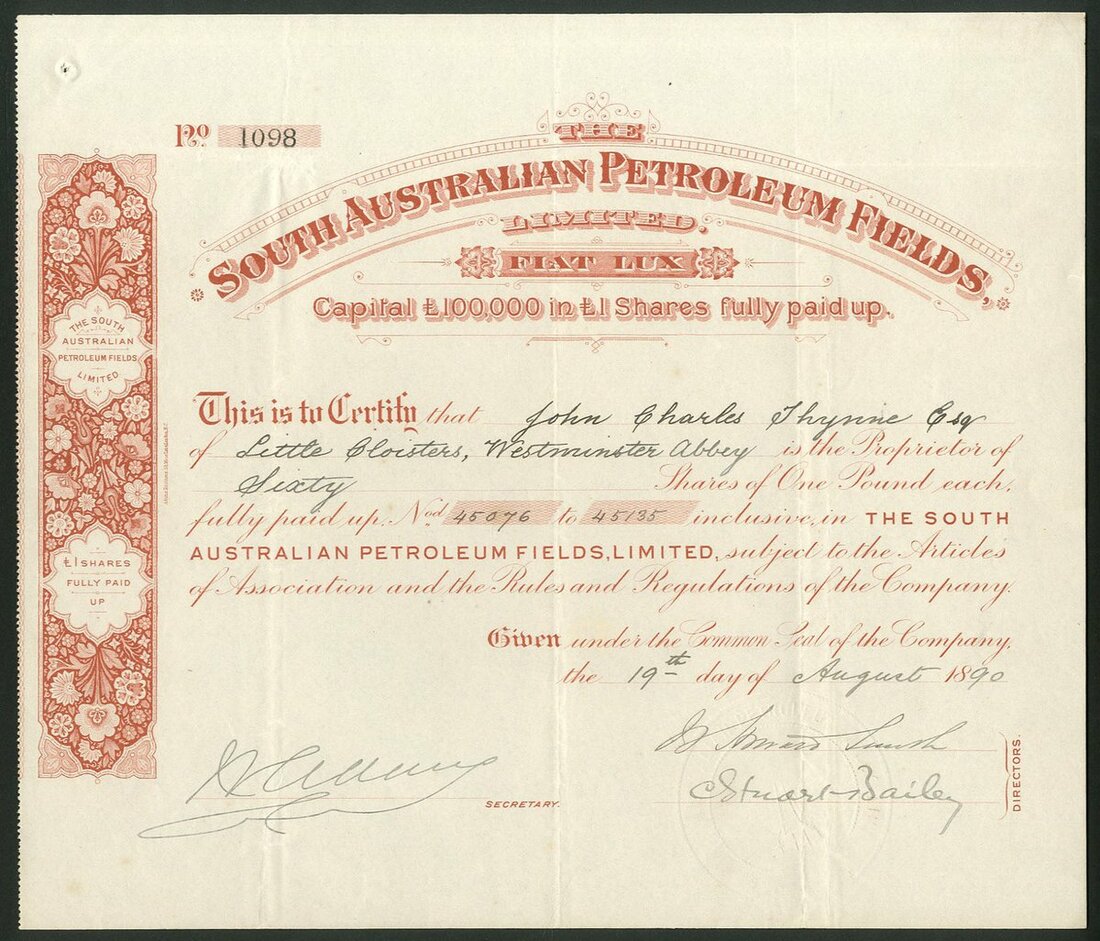 No 1098
THE
SOUTH AUSTRALIAN PETROLEUM FIELDS,
LIMITED.
FIAT LUX
Capital £100,000 in £1 Shares fully paid up.
THE SOUTH
AUSTRALIAN
PETROLEUM FIELDS
LIMITED
£1 SHARES
FULLY PAID
UP
This is to Certify that John Charles Thynne Esq
of Little Cloisters, Westminster Abbey is the Proprietor of
Sixty Shares of One Pound each,
fully paid up, Nod 45076 to 45135 inclusive, in THE SOUTH
AUSTRALIAN PETROLEUM FIELDS, LIMITED, subject to the Articles
of Association and the Rules and Regulations of the Company.
Given under the Common Seal of the Company,
the 19th day of August 1890
SECRETARY.
C Stuart Bailey
DIRECTORS.